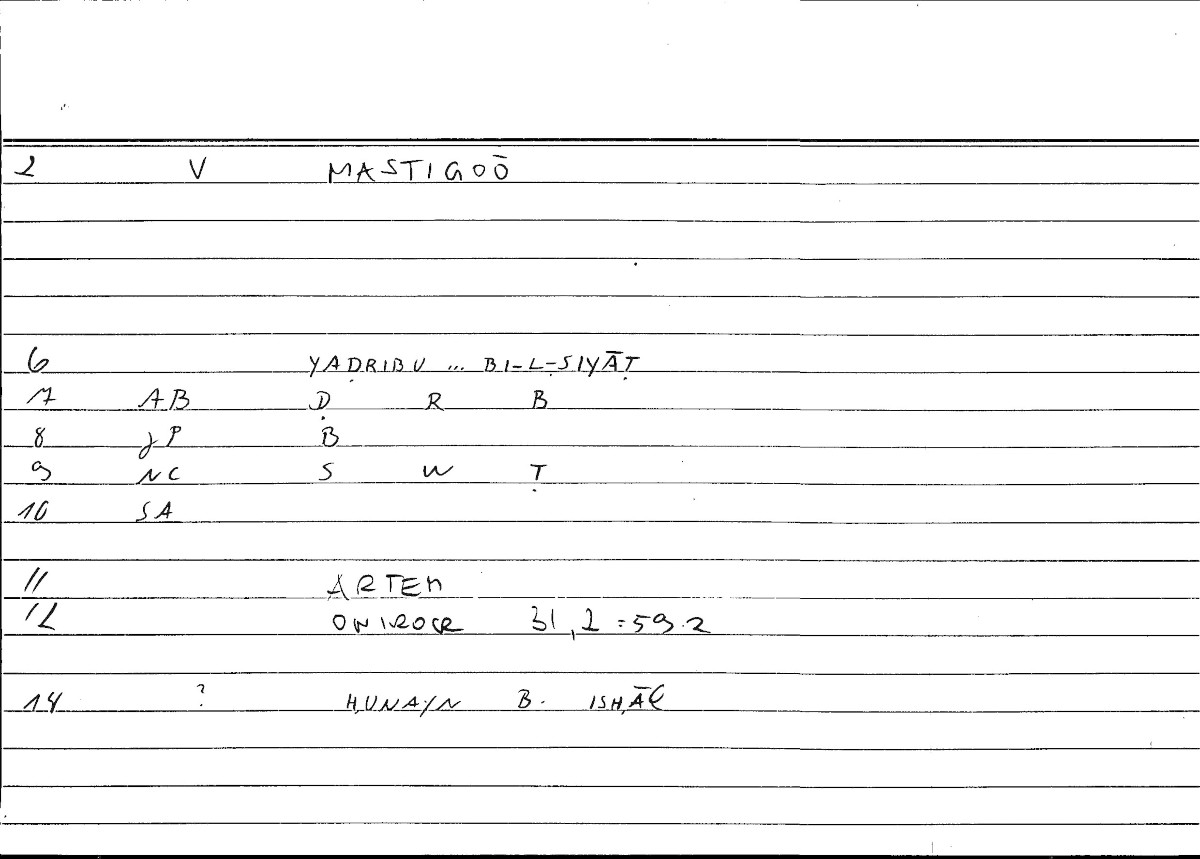 2 V MASTIGOŌ
6 YAḌRIBU ... BI-L-SIYĀṬ
7 AB Ḍ R B
8 JP B
9 NC S W Ṭ
10 SA
11 ARTEM
12 ONIROCR 31,2=59.2
14 ? ḤUNAYN B. ISḤĀ